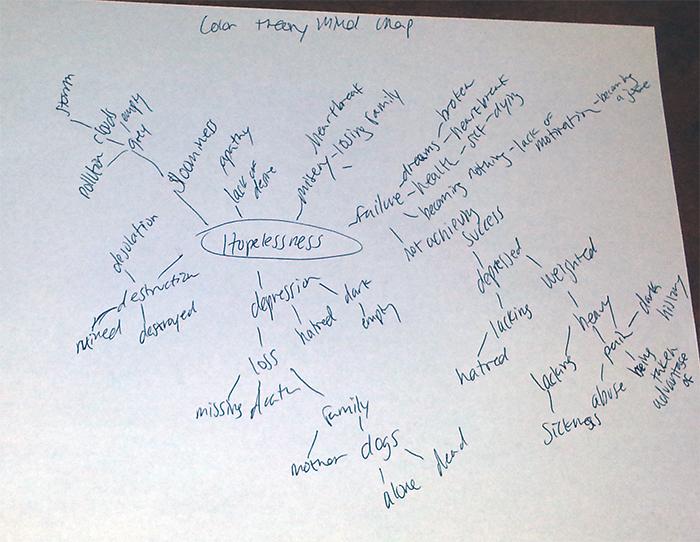 Color theory Mind Map
storm
clouds
pollution
empty
grey
gloominess
apathy
lack of
desire
heartbreak
misery-losing family
failure-dreams-broken
health-heartbreak
sick-dying
becoming nothing-lack of
motivation-becoming
a
not achieving
success
Hopelessness
desolation
destruction
ruined
destroyed
depression
hatred
dark
empty
loss
missing
death
family
mother
dogs
alone
dead
depressed
lacking
hatred
weighted
heavy
lacking
Sickness
pain
abuse
being
taken
advantage
of
dark
history